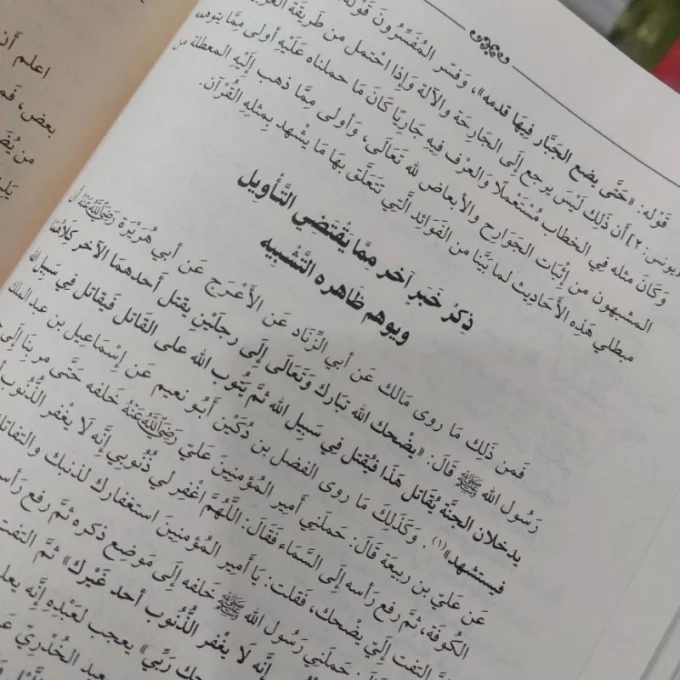 قَوْله: «حَتَّى يضع الجَبَّار فِيهَا قدمه»، وَفسّر المُفَسِّرُونَ قَوْله:
[يونس: ٢] أَن ذَلِك لَيْسَ يرجع إِلَى الجَارِحَة والآلة وَإِذا احْتمل من طَريقَة
وَكَانَ مثله فِي الخطاب مُسْتَعْملًا وَالعرْف فِيهِ جَارِيًا كَانَ مَا حملناه عَلَيْهِ أولى مِمَّا يتوهمه
المشبهون من إِثْبَات الجَوَارِح والأبعاض لله تَعَالَى، وَأولى مِمَّا ذهب إِلَيْهِ المعطلة من
مبطلي هَذِه الأَحَادِيث لما بَينا من الفَوَائِد الَّتِي تتَعَلَّق بهَا مَا يشْهد بِمثلِهِ القُرْآن.
ذِكرُ خَبَرٍ آخر مِمَّا يَقْتَضِي التَّأْوِيل
ويوهم ظَاهره التَّشْبِيه
فَمن ذَلِك مَا روى مَالك عَن أبي الزِّنَاد عَن الأَعْرَج عَن أبي هُرَيْرَة رَضِيَ اللَّهُ عَنْهُ أَن
رَسُول الله ﷺ قَالَ: «يضْحك الله تبَارك وَتَعَالَى إِلَى رجلَيْنِ يقتل أَحدهمَا الآخر كِلَاهُمَا
يدخلَان الجنَّة يُقَاتل هَذَا فَيُقْتل فِي سَبِيل الله ثمَّ يَتُوب الله على القَاتِل فَيُقَاتل فِي سَبِيل الله
فيستشهد»(١). وَكَذَلِكَ مَا روى الفضل بن دُكَيْن أَبُو نعيم عَن إِسْمَاعِيل بن عبد الملك
عَن عَليّ بن ربيعَة قَالَ: حَملَنِي أَمِير المُؤمنِينَ عَليّ رَضِيَ اللَّهُ عَنْهُ خَلفه حَتَّى مر بِنَا إِلَى
الكُوفَة، ثمَّ رفع رَأسه إِلَى السَّمَاء فَقَالَ: اللَّهُمَّ اغْفِر لي ذُنُوبِي إِنَّه لَا يغْفر الذُّنُوب
التفت إِلَيّ يضْحك، فَقلت: يَا أَمِير المُؤمنِينَ استغفارك لذنبك والتفاتك
حَملَنِي رَسُول الله ﷺ خَلفه إِلَى مَوضِع ذكره ثمَّ رفع رَأسه
إِنَّه لَا يغْفر الذُّنُوب أحد غَيْرك» ثمَّ التفت
رَبِّي» يعجب لعَبْدِهِ إِنَّه يعلم
الخُدْرِيّ
اعلم أَن
بعض، فَم
من